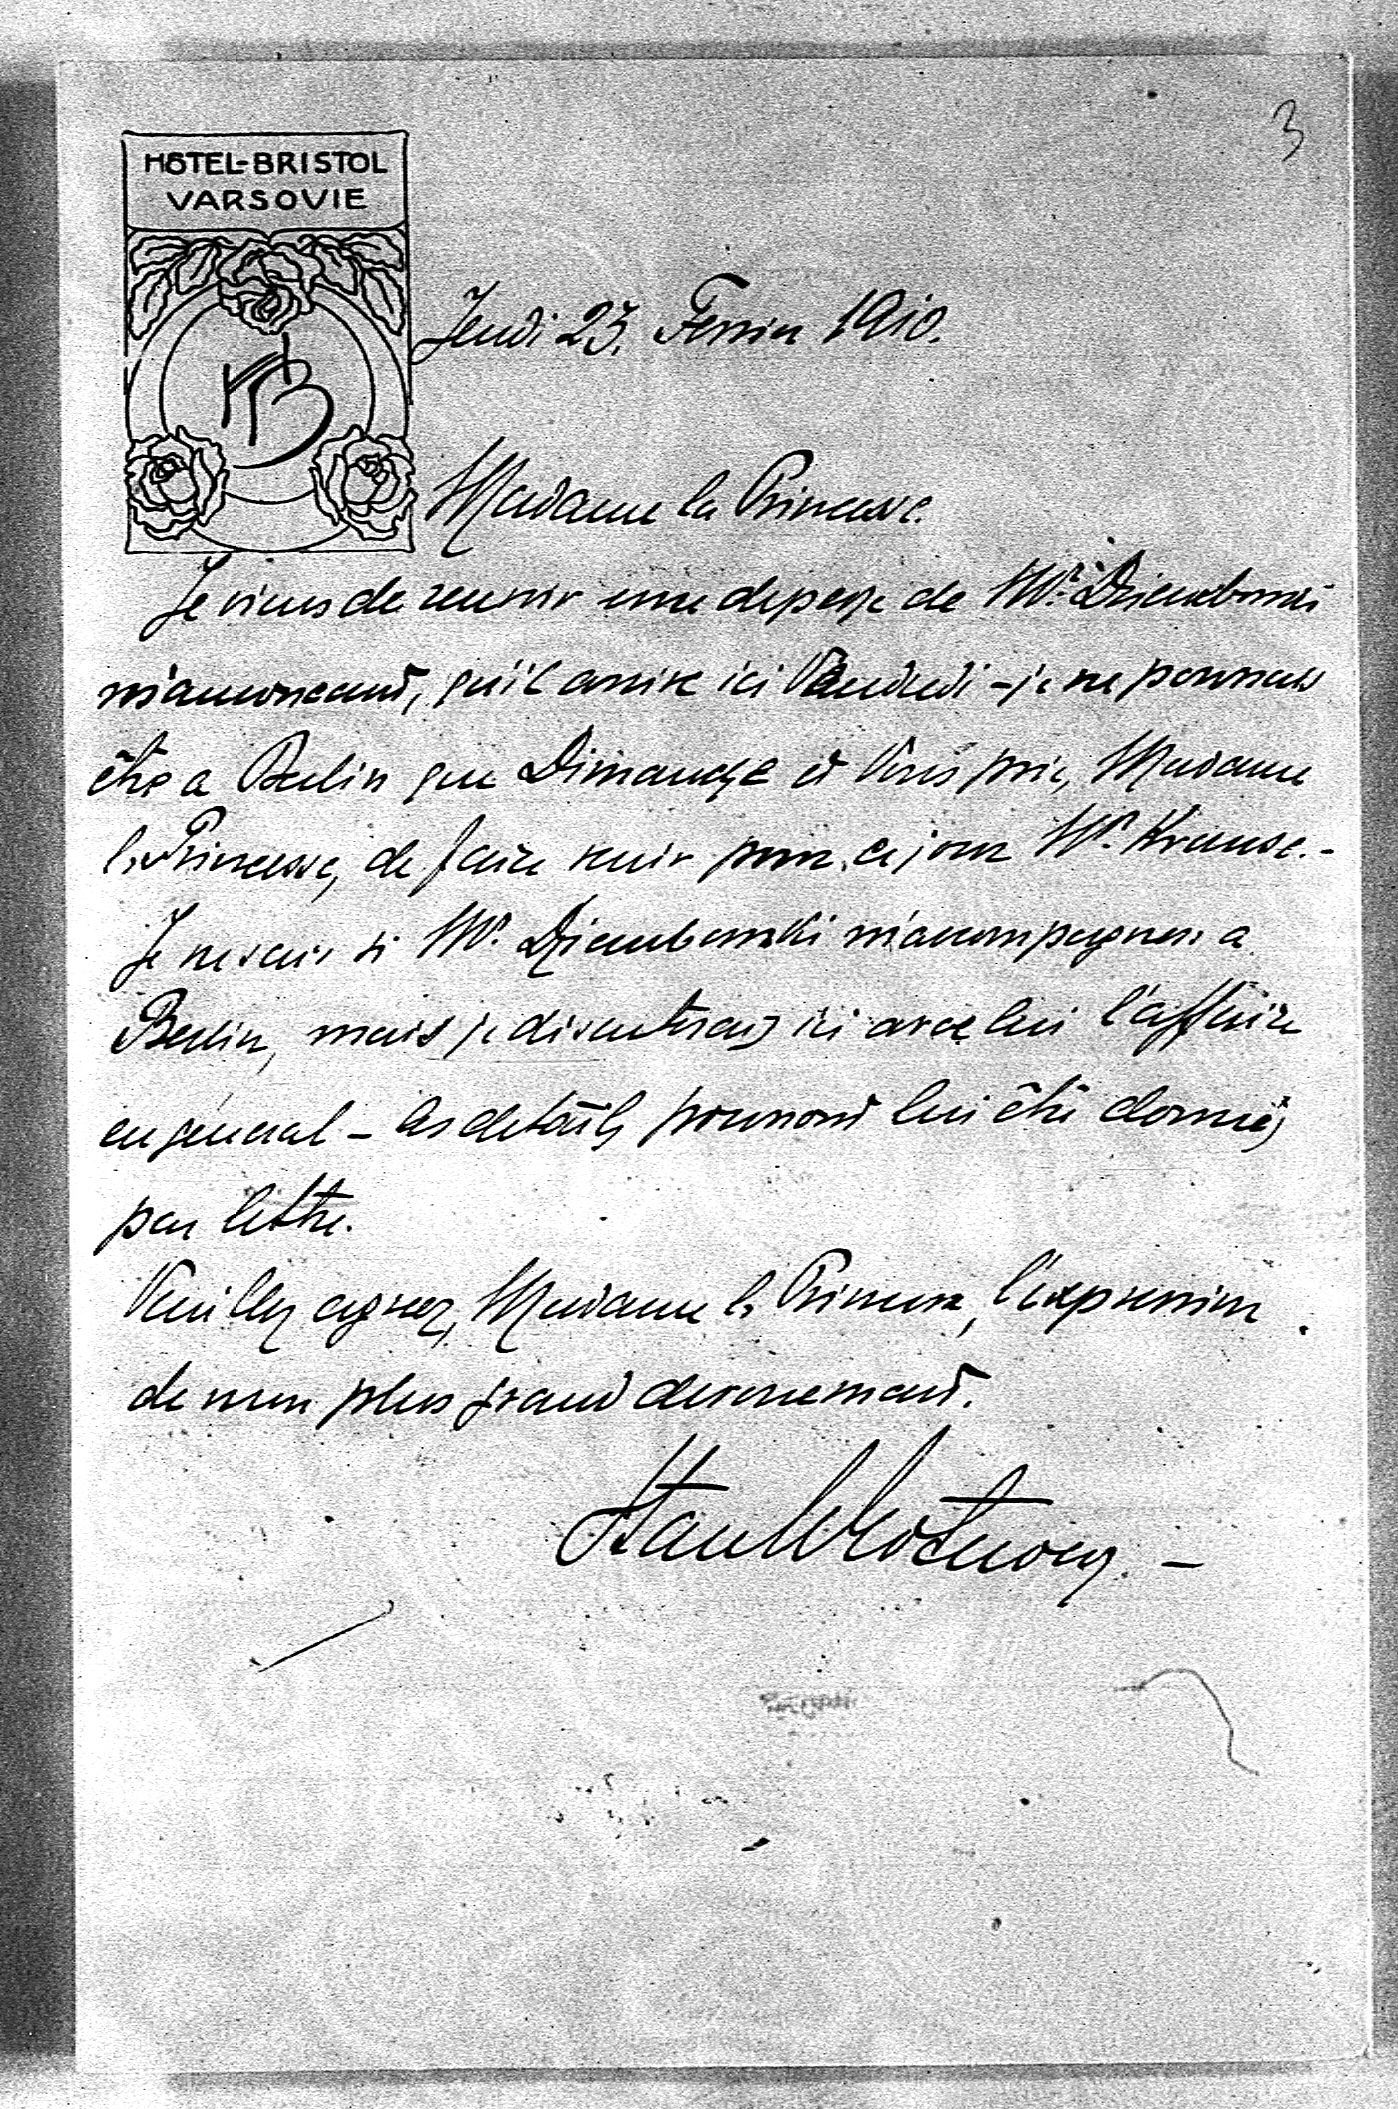 3
HÔTEL-BRISTOL
VARSOVIE
HB
Jeudi 23. Fevrier 1910.
Madame la Princesse.
Je viens de recevoir une depeche de Mr. Dziembowski
m'annoncant, qu'il arrive ici Vendredi – je ne pourrais
être a Berlin que Dimanche et Vous prie, Madame
la Princesse, de faire venir pour ce jour Mr. Krause. –
Je ne sais si Mr. Dziembowski m'accompagnera a
Berlin, mais je discuterai ici avec lui l'affaire
en général – les details pourront lui être donnés
par lettre.
Veuillez agreer, Madame la Princesse, l'expression
de mon plus grand devouement.
Stan